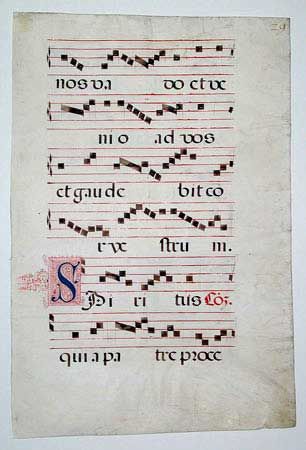 nos va do et ve
nio ad vos
et gaude bit co
r ve strum.
Spi ri tus
qui a pa tre proce